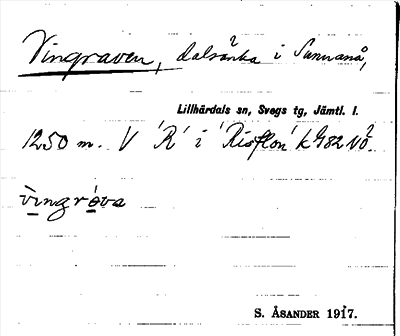 Vingraven, dalsänka i Sunnanå,
Lillhärdals sn, Svegs tg, Jämtl. l.
1250 m. V 'R' i 'Risflon' k 982 NÖ.
vingrova
S. ÅSANDER 1917.